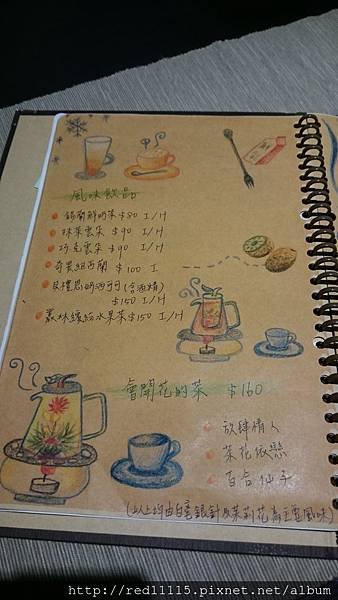 風味飲品
錫蘭鮮奶茶 $80 I/H
抹茶雲朵 $90 I/H
巧克雲朵 $90 I/H
奇異紐西蘭 $100 I
奶酒可可(含酒精)
$150 I/H
叢林繽紛水果茶 $150 I/H
會開花的茶 $160
放肆情人
茉花依戀
百合仙子
(以上均由白毫銀針及茉莉花為主要風味)
http://red11115.pixnet.net/album